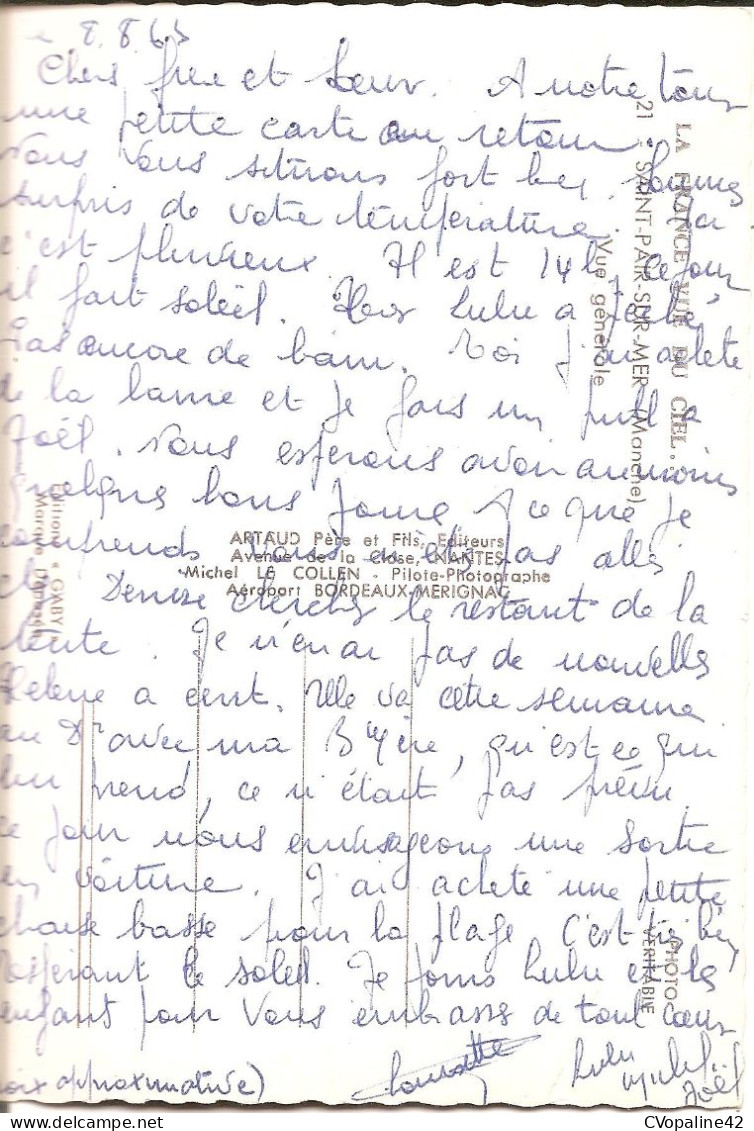 8.8.63
Chers frère et soeur. A notre tour
une petite carte au retour.
Nous vous savons fort bien, sommes
surpris de votre température. Ici
c'est pluvieux. Il est 14h, ce jour
il fait soleil. Hier Lulu a
Pas encore de bain. Moi j'ai acheté
de la laine et je fais un pull a
Joël. Nous esperons avoir au moins
quelques bons jours. A ce que je
comprends vous n'etes pas allés
chez Denise chercher le restant de la
tente. Je n'en ai pas de nouvelles
Helene a ecrit. Elle va cette semaine
au Dr avec ma B Mère, qu'est ce qui
lui prend, ce n'était pas prévu.
ce jour nous envisageons une sortie
en voiture. J'ai acheté une petite
chaise basse pour la plage. C'est très bien
le soleil. Je joins Lulu et les
enfant pour vous embrasser de tout coeur
approximative)
Lulu
Michel
Joël
LA FRANCE VUE DU CIEL.
21. SAINT-PAIR-SUR-MER (Manche)
Vue générale
ARTAUD Père et Fils, Editeurs
Avenue de la Close, NANTES
Michel LE COLLEN - Pilote-Photographe
Aéroport BORDEAUX-MERIGNAC
Editions « GABY »
Marque Déposée
PHOTO
VÉRITABLE
CVopaline42